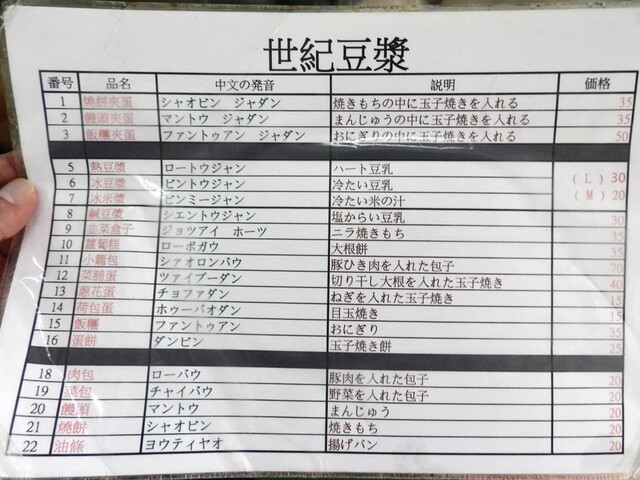 世紀豆漿
番号 品名 中文の発音 説明 価格
1 燒餅夾蛋 シャオビン ジャダン 焼きもちの中に玉子焼きを入れる 35
2 饅頭夾蛋 マントウ ジャダン まんじゅうの中に玉子焼きを入れる 35
3 飯糰夾蛋 ファントゥアン ジャダン おにぎりの中に玉子焼きを入れる 50
5 熱豆漿 ロートウジャン ハート豆乳
6 冰豆漿 ビントウジャン 冷たい豆乳 (L) 30
7 冰米漿 ビンミージャン 冷たい米の汁 (M) 20
8 鹹豆漿 シエントウジャン 塩からい豆乳 30
9 韭菜盒子 ジョツアイ ホーツ ニラ焼きもち 35
10 蘿蔔糕 ローボガウ 大根餅 35
11 小籠包 シアオロンバウ 豚ひき肉を入れた包子 70
12 菜脯蛋 ツァイブーダン 切り干し大根を入れた玉子焼き 40
13 葱花蛋 チョファダン ねぎを入れた玉子焼き 15
14 荷包蛋 ホゥーバオダン 目玉焼き 15
15 飯糰 ファントゥアン おにぎり 35
16 蛋餅 ダンビン 玉子焼き餅 25
18 肉包 ローバウ 豚肉を入れた包子 20
19 菜包 チャイバウ 野菜を入れた包子 20
20 饅頭 マントウ まんじゅう 20
21 燒餅 シャオビン 焼きもち 20
22 油條 ヨウティヤオ 揚げパン 20